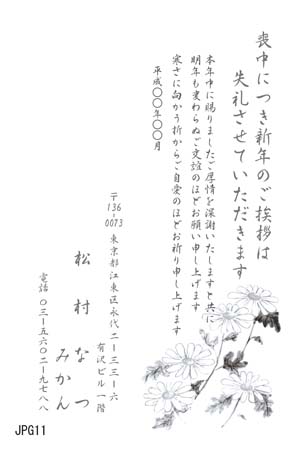 喪中につき新年のご挨拶は
失礼させていただきます
本年中に賜りましたご厚情を深謝いたしますと共に
明年も変わらぬご交誼のほどお願い申し上げます
寒さに向かう折からご自愛のほどお祈り申し上げます
平成〇〇年〇〇月
〒136-0073
東京都江東区永代二ー三三ー六
有沢ビル一階
松村なつ
みかん
電話〇三ー五六〇二ー九七八八
JPG11